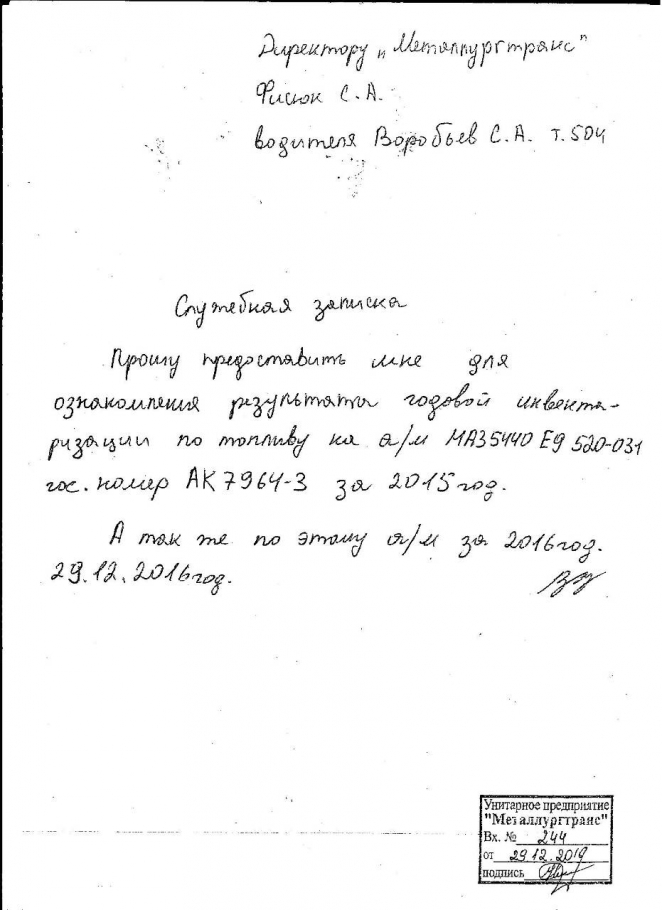 Директору „Металлургтранс"
Фисюк С.А.
водителя Воробьев С.А. т.504
Служебная записка
Прошу предоставить мне для
ознакомления результаты годовой инвента-
ризации по топливу на а/м МАЗ 5440 Е9 520-031
гос. номер АК 7964-3 за 2015 год.
А так же по этому а/м за 2016 год.
29.12.2016 год.
Унитарное предприятие
"Металлургтранс"
Вх. № 244
от 29.12.2016
подпись